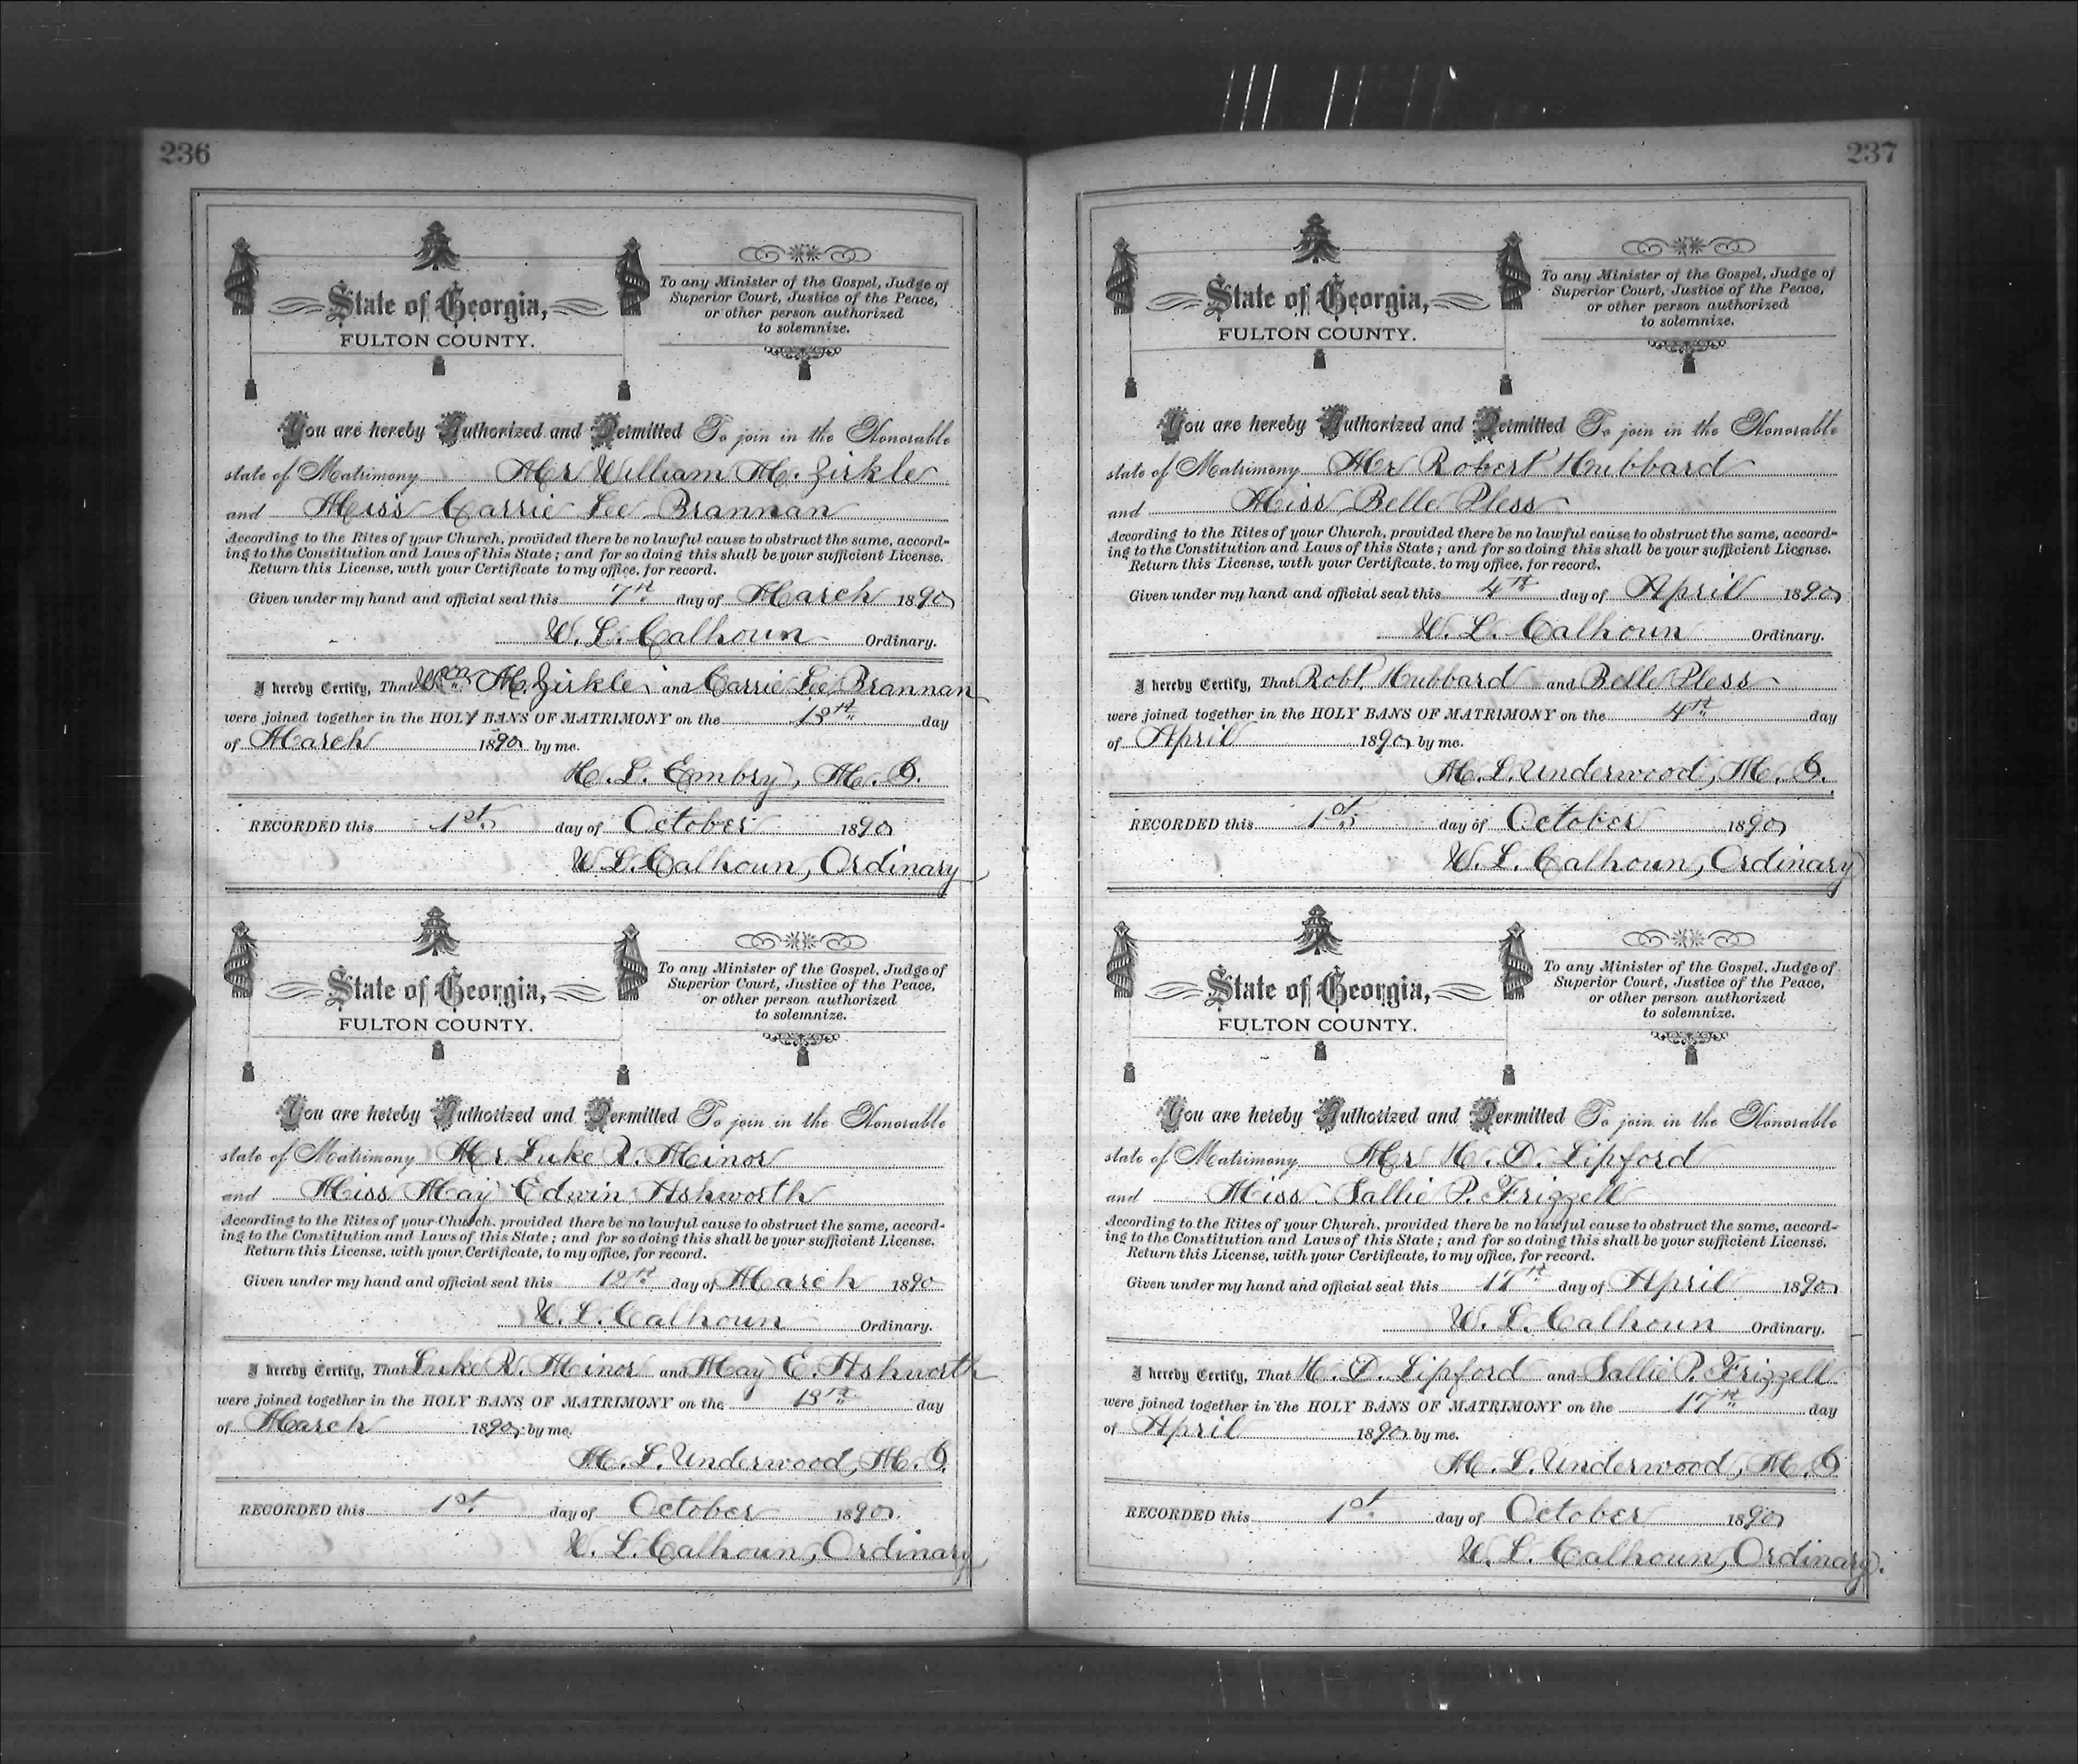 236
State of Georgia,
FULTON COUNTY.
To any Minister of the Gospel, Judge of
Superior Court, Justice of the Peace,
or other person authorized
to solemnize.
You are hereby Authorized and Permitted To join in the Honorable
state of Matrimony Mr William M. Zirkle
and Miss Carrie Lee Brannan
According to the Rites of your Church, provided there be no lawful cause to obstruct the same, accord-
ing to the Constitution and Laws of this State; and for so doing this shall be your sufficient License.
Return this License, with your Certificate to my office, for record.
Given under my hand and official seal this 7th day of March 1890
W. L. Calhoun Ordinary.
I hereby Certify, That Wm M. Zirkle and Carrie Lee Brannan
were joined together in the HOLY BANS OF MATRIMONY on the 13th day
of March 1890 by me.
H. L. Embry, M. G.
RECORDED this 1st day of October 1890
W. L. Calhoun, Ordinary
State of Georgia,
FULTON COUNTY.
To any Minister of the Gospel, Judge of
Superior Court, Justice of the Peace,
or other person authorized
to solemnize.
You are hereby Authorized and Permitted To join in the Honorable
state of Matrimony Mr Luke R. Minor
and Miss May Edwin Ashworth
According to the Rites of your Church, provided there be no lawful cause to obstruct the same, accord-
ing to the Constitution and Laws of this State; and for so doing this shall be your sufficient License.
Return this License, with your Certificate, to my office, for record.
Given under my hand and official seal this 12th day of March 1890
W. L. Calhoun Ordinary.
I hereby Certify, That Luke R. Minor and May E. Ashworth
were joined together in the HOLY BANS OF MATRIMONY on the 13th day
of March 1890 by me.
M. L. Underwood, M. G.
RECORDED this 1st day of October 1890.
W. L. Calhoun, Ordinary
237
State of Georgia,
FULTON COUNTY.
To any Minister of the Gospel, Judge of
Superior Court, Justice of the Peace,
or other person authorized
to solemnize.
You are hereby Authorized and Permitted To join in the Honorable
state of Matrimony Mr Robert Hubbard
and Miss Belle Pless
According to the Rites of your Church, provided there be no lawful cause to obstruct the same, accord-
ing to the Constitution and Laws of this State; and for so doing this shall be your sufficient License.
Return this License, with your Certificate, to my office, for record.
Given under my hand and official seal this 4th day of April 1890
W. L. Calhoun Ordinary.
I hereby Certify, That Robt. Hubbard and Belle Pless
were joined together in the HOLY BANS OF MATRIMONY on the 4th day
of April 1890 by me.
M. L. Underwood, M. G.
RECORDED this 1st day of October 1890
W. L. Calhoun, Ordinary
State of Georgia,
FULTON COUNTY.
To any Minister of the Gospel, Judge of
Superior Court, Justice of the Peace,
or other person authorized
to solemnize.
You are hereby Authorized and Permitted To join in the Honorable
state of Matrimony Mr H. D. Lipford
and Miss Sallie P. Frizzell
According to the Rites of your Church, provided there be no lawful cause to obstruct the same, accord-
ing to the Constitution and Laws of this State; and for so doing this shall be your sufficient License.
Return this License, with your Certificate, to my office, for record.
Given under my hand and official seal this 17th day of April 1890
W. L. Calhoun Ordinary.
I hereby Certify, That H. D. Lipford and Sallie P. Frizzell
were joined together in the HOLY BANS OF MATRIMONY on the 17th day
of April 1890 by me.
M. L. Underwood, M. G
RECORDED this 1st day of October 1890
W. L. Calhoun, Ordinary.